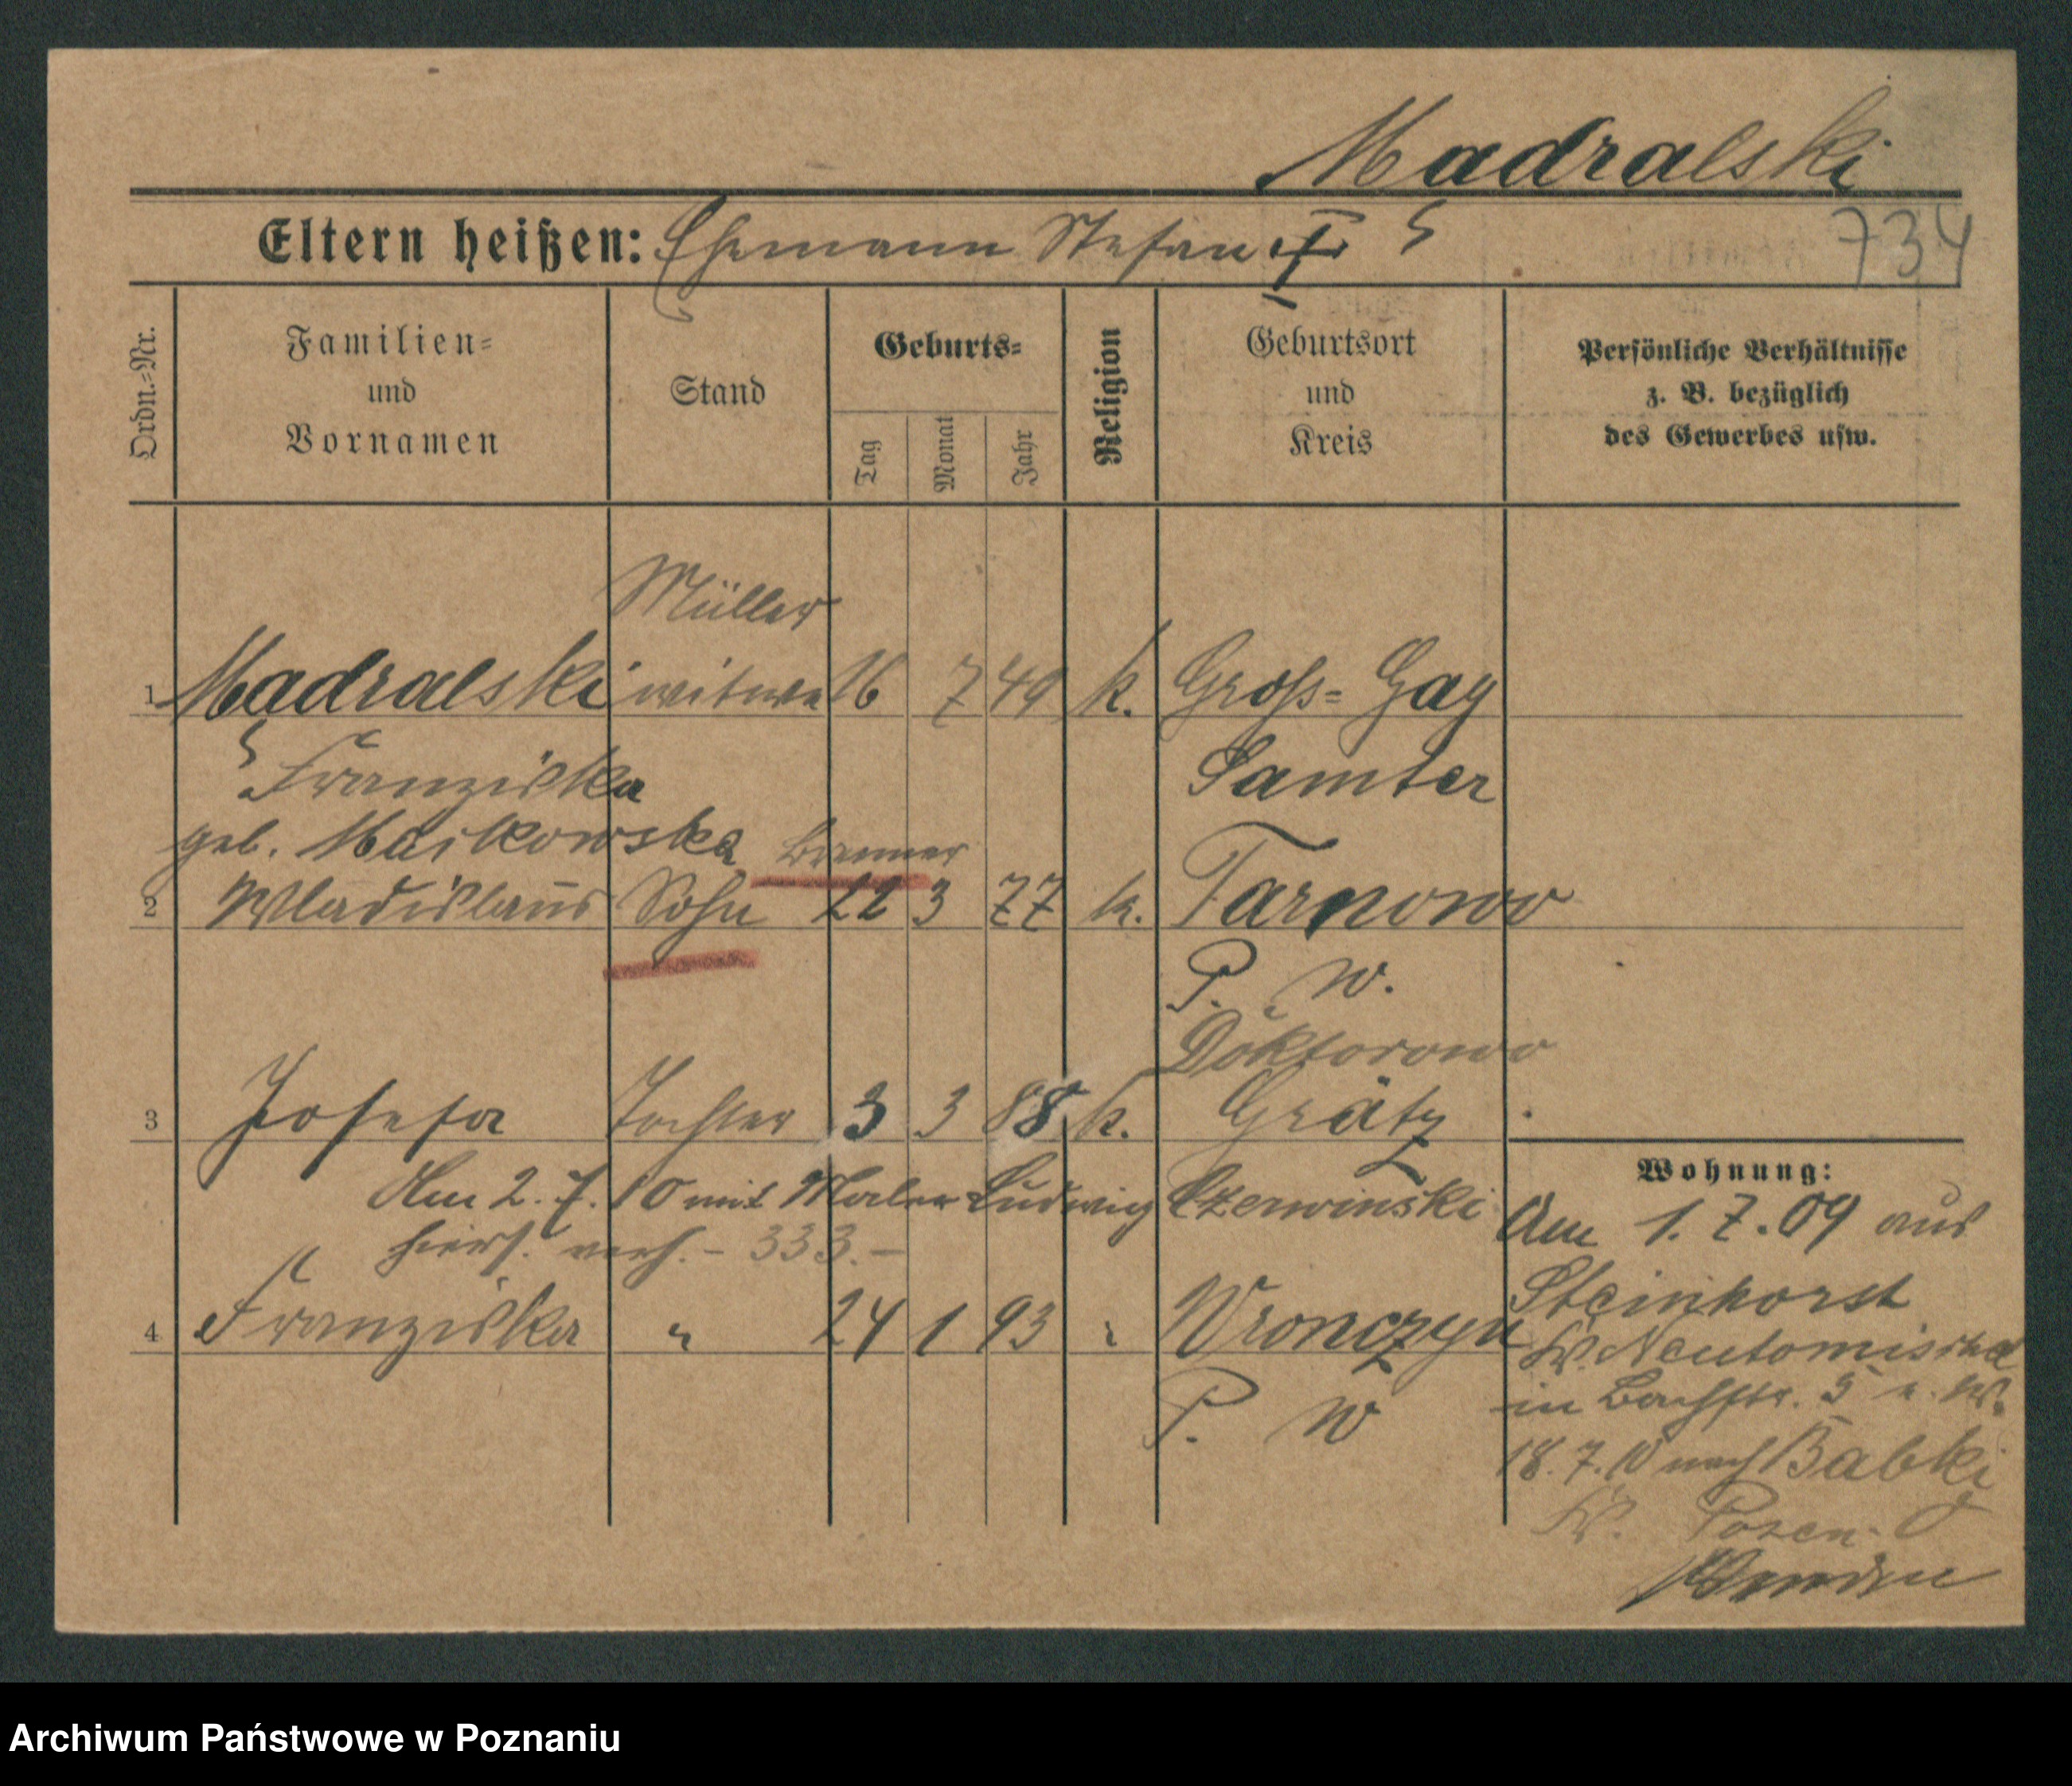 Madralski
Eltern heißen: Ehemann Stefan †
734
Ordn.=Nr.
Familien=
und
Vornamen
Stand
Geburts=
Tag
Monat
Jahr
Religion
Geburtsort
und
Kreis
Persönliche Verhältnisse
z. B. bezüglich
des Gewerbes usw.
Müller
1 Madralski witwe 16 7 49 k. Groß=Gay
Franziska Samter
geb. Maikowska
2 Wladislaus Sohn 22 3 77 k. Tarnowo
P. W.
Doktorowo
3 Josefa Tochter 3 3 88 k. Grätz
Am 2. 7. 10 mit Maler Ludwig Czerwinski
hiers. verh. - 333. -
4 Franziska " 24 1 93 " Wronczyn
P. W
Wohnung:
Am 1. 7. 09 aus
Steinhorst
Kr. Neutomischel
in Bachstr. 5 z. W.
18. 7. 10 nach Babki
Kr. Posen